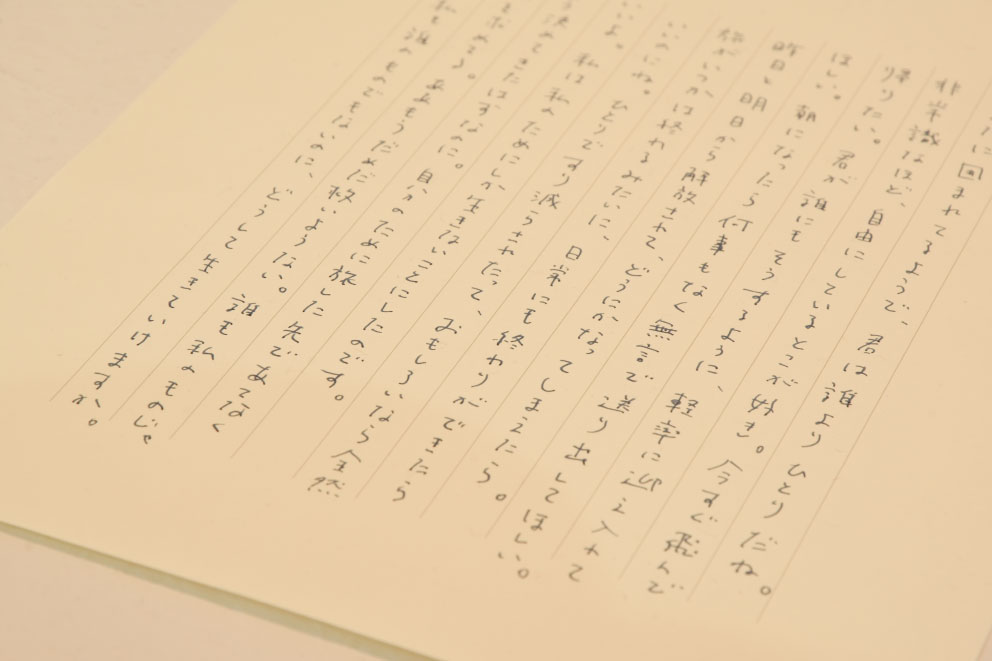 たに囲まれてるようで、君は誰よりひとりだね。
非常識なほど、自由にしているとこが好き。今すぐ飛んで
帰りたい。君が誰にもそうするように、軽率に迎え入れて
ほしい。朝になったら何事もなく無言で送り出してほしい。
昨日と明日から解放されて、どうにかなってしまえたら。
旅がいつかは終わるみたいに、日常にも終わりができたら
いいのにね。ひとりですり減らされたって、おもしろいなら全然
いいよ。私は私のためにしか生きないことにしたのです。
決めてきたはずなのに。自分のために旅した先であてなく
を求めてる。ああもうだめだ救いようない。誰も私のものじゃ
私も誰のものでもないのに、どうして生きていけますか。